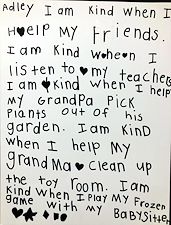 Adley I am kind when I
help my friends.
I am kind when I
listen to my teacher
I am kind when I help
my GrandPa Pick
Plants out of his
garden. I am kinD
when I help My
grandma clean up
the toy room. I am
kind when I Play My Frozen
game with my BaBYSitter